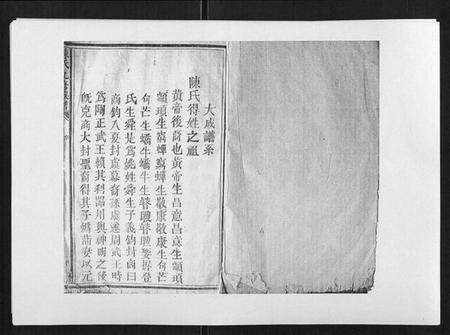 大成譜系
陳氏得姓之祖
黃帝後裔也黃帝生昌意昌意生顓頊
顓頊生窮蟬窮蟬生敬康敬康生句芒
句芒生蟜牛蟜牛生瞽瞍瞽瞍娶握登
氏生舜是為姚姓舜生子義鈞封商曰
商鈞入夏封虞幕裔孫虞遏周武王時
為陶正武王賴其利器用與神明之後
既克商大封聖裔得其子媯滿妻以元